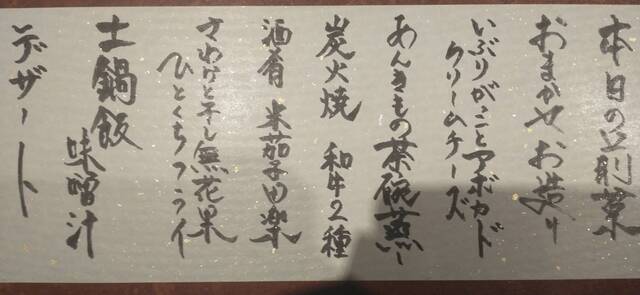 本日の前菜
おまかせお造り
いぶりがっことアボカド
クリームチーズ
あんきもの茶碗蒸し
炭火焼 和牛2種
酒肴 米茄子田楽
さわらと干し無花果
ひとくちフライ
土鍋飯
味噌汁
デザート